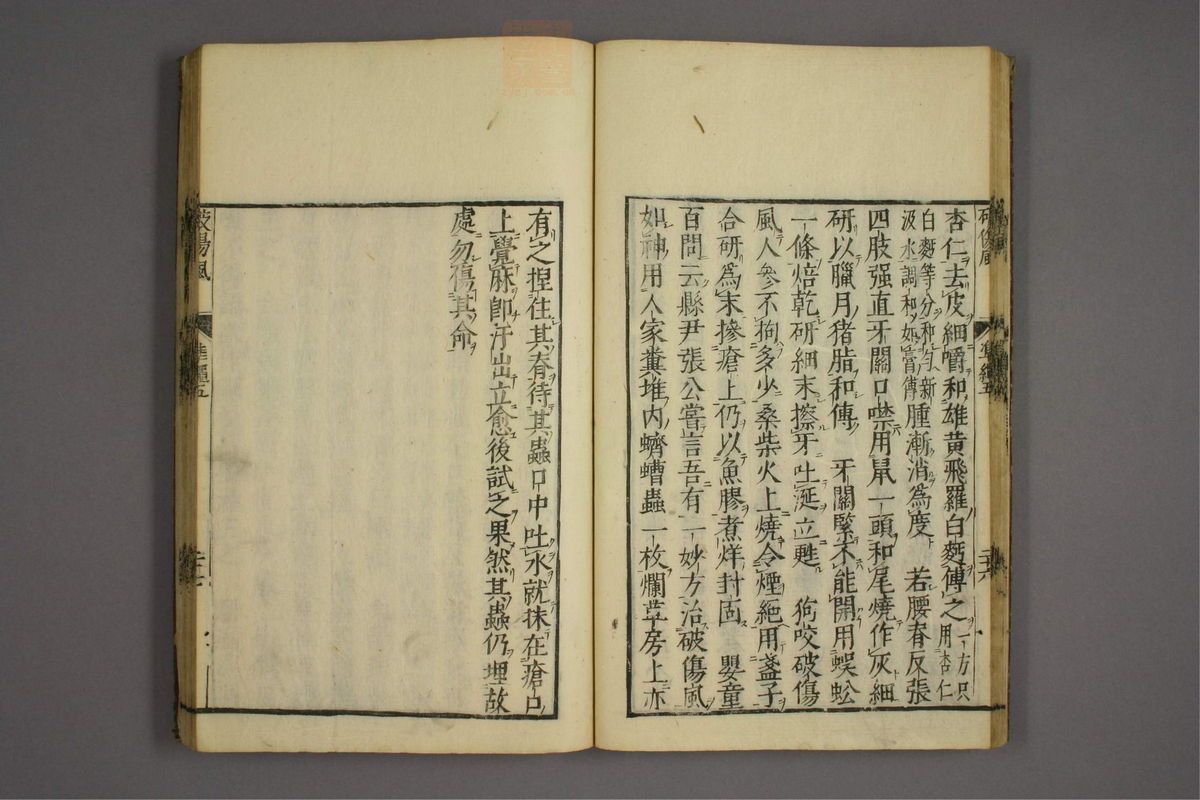 杏仁去皮細嚼和雄黄飛羅白麪傅之一方只用杏仁
白麪等分和勻新汲水調和如膏傅腫漸消爲度　若腰脊反張
四肢强直牙關口噤用鼠一頭和尾燒作灰細
研以臘月猪脂和傅　牙關緊不能開用蜈蚣
一條焙乾研細末擦牙吐涎立甦　狗咬破傷
風人參不拘多少桑柴火上燒令煙絶用盞子
合研爲末摻瘡上仍以魚膠煮烊封固　嬰童
百問云縣尹張公嘗言吾有一妙方治破傷風
如神用人家糞堆内蠐螬蟲一枚爛草房上亦
有之捏住其脊待其蟲口中吐水就抹在瘡口
上覺麻即汗出立愈後試之果然其蟲仍埋故
處勿傷其命
破傷風
準繩五
二十七